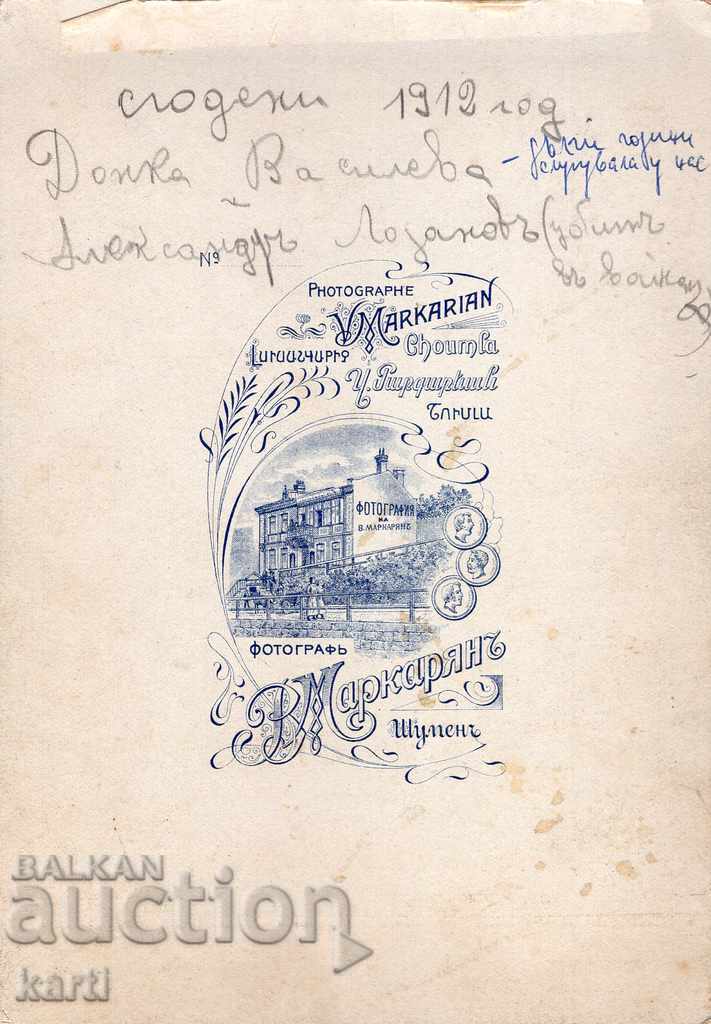 сгодени 1912 год
Донка Василева
– дълги години
слугувала у нас
Александъръ Лозановъ (убитъ
въ
Nº
PHOTOGRAPHE
V. MARKARIAN
ԼՈՒՍԱՆԿԱՐԻՉ
Choumla
Վ. Մարգարեան
ՇՈՒՄԼԱ
ФОТОГРАФИЯ
НА
В. МАРКАРЯНЪ
ФОТОГРАФЪ
В. Маркарянъ
Шуменъ
BALKAN
auction
karti